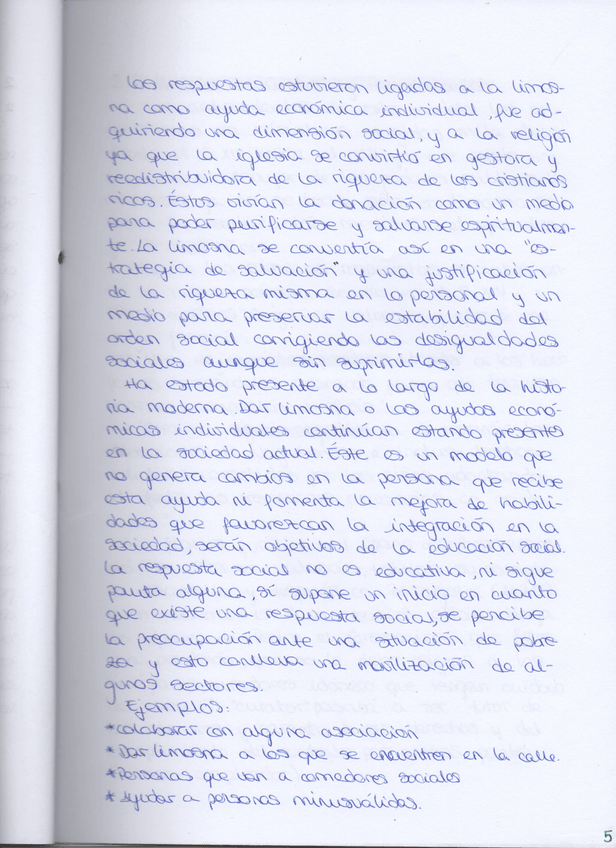 Las respuestas estuvieron ligadas a la limos-
na como ayuda económica individual, fue ad-
quiriendo una dimensión social, y a la religión
ya que la iglesia se convirtió en gestora y
reedistribuidora de la riqueza de los cristianos
ricos. Éstos vivían la donación como un medio
para poder purificarse y salvarse espiritualmen-
te. La limosna se convertía así en una "es-
trategia de salvación" y una justificación
de la riqueza misma en lo personal y un
medio para preservar la estabilidad del
orden social corrigiendo las desigualdades
sociales aunque sin suprimirlas.
Ha estado presente a lo largo de la histo-
ria moderna. Dar limosna o las ayudas econó-
micas individuales continúan estando presentes
en la sociedad actual. Éste es un modelo que
no genera cambios en la persona que recibe
esta ayuda ni fomenta la mejora de habili-
dades que favorezcan la integración en la
sociedad, serán objetivos de la educación social.
La respuesta social no es educativa, ni sigue
pauta alguna, sí supone un inicio en cuanto
que existe una respuesta social, se percibe
la preocupación ante una situación de pobre-
za y esto conlleva una movilización de al-
gunos sectores.
Ejemplos:
*Colaborar con alguna asociación
*Dar limosna a los que se encuentren en la calle.
*Personas que van a comedores sociales
*Ayudar a personas minusválidas.
5